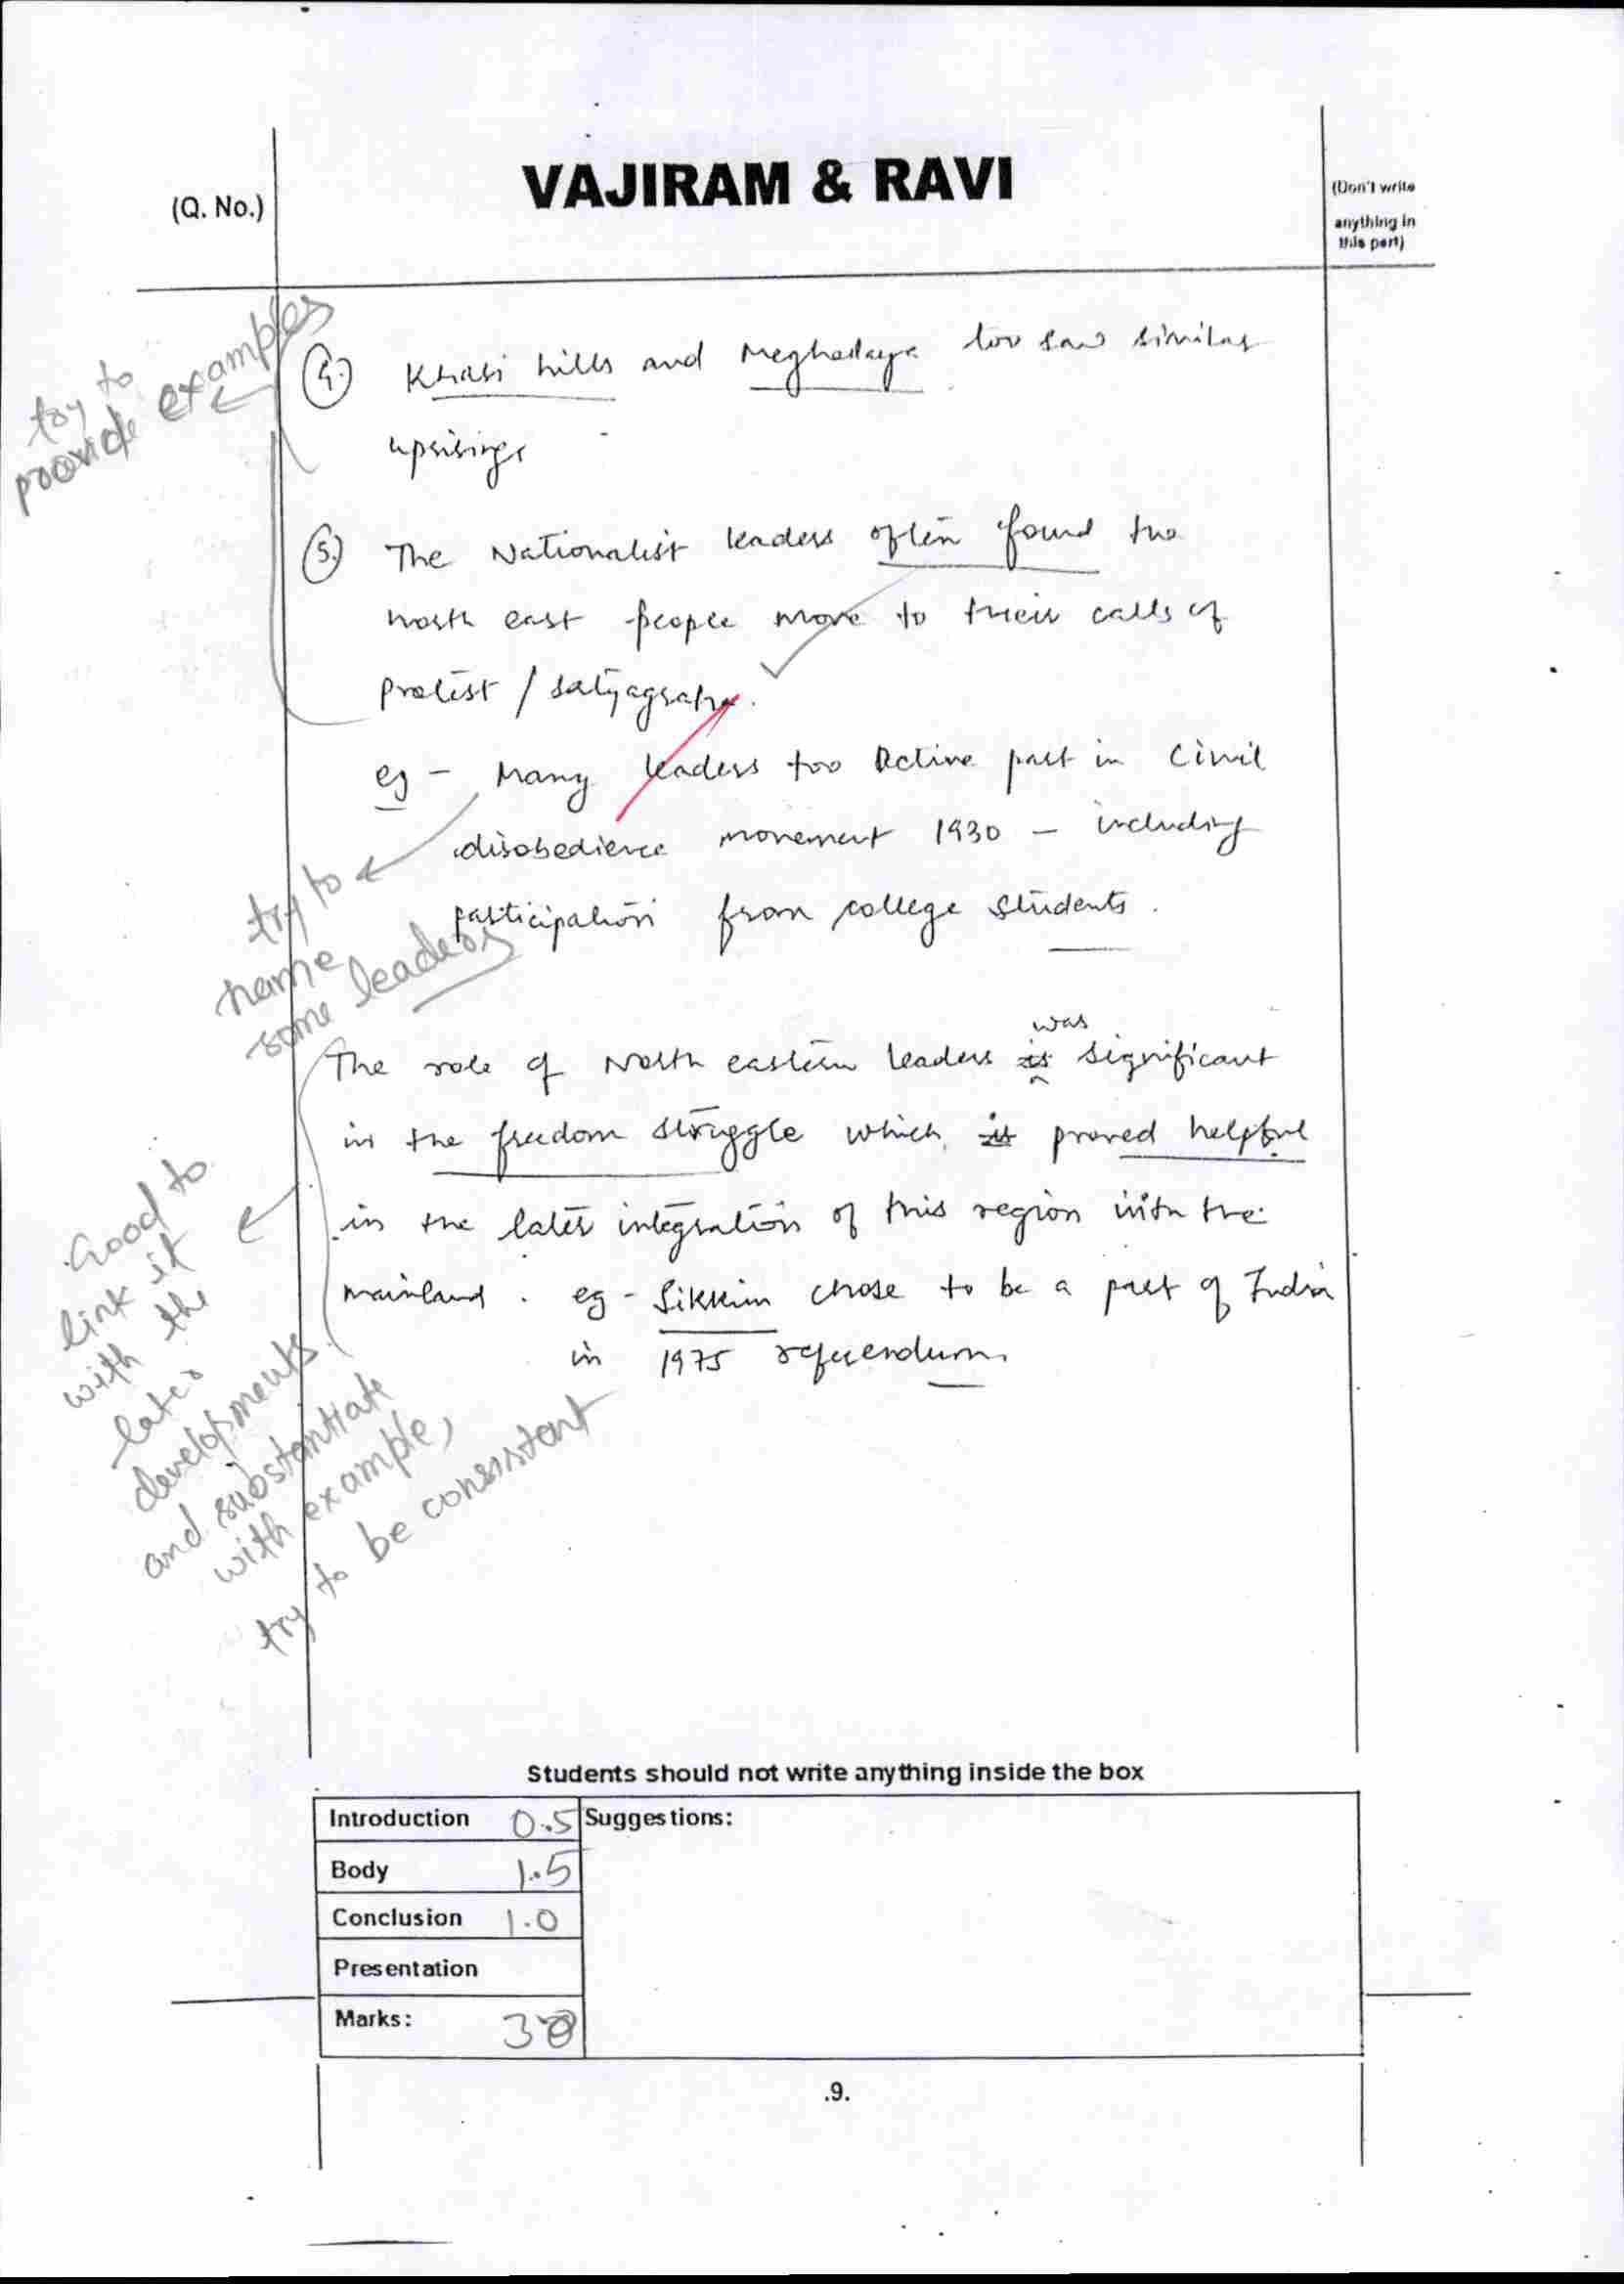 VAJIRAM & RAVI
(Q. No.)
(Don't write
anything in
this part)
try to
provide examples
4.) Khasi hills and Meghalaya too saw similar
uprisings
5.) The Nationalist leaders often found the
north east people move to their calls of
protest / satyagraha.
eg - Many leaders too Active part in Civil
disobedience movement 1930 - including
participation from college students.
try to
name
some leaders
was
The role of North eastern leaders is significant
in the freedom struggle which is proved helpful
in the later integration of this region with the
mainland. eg - Sikkim chose to be a part of India
in 1975 referendum.
Good to
link it
with the
later
developments
and substantiate
with example,
try to be consistent
Students should not write anything inside the box
Introduction 0.5 Suggestions:
Body 1.5
Conclusion 1.0
Presentation
Marks: 3
.9.